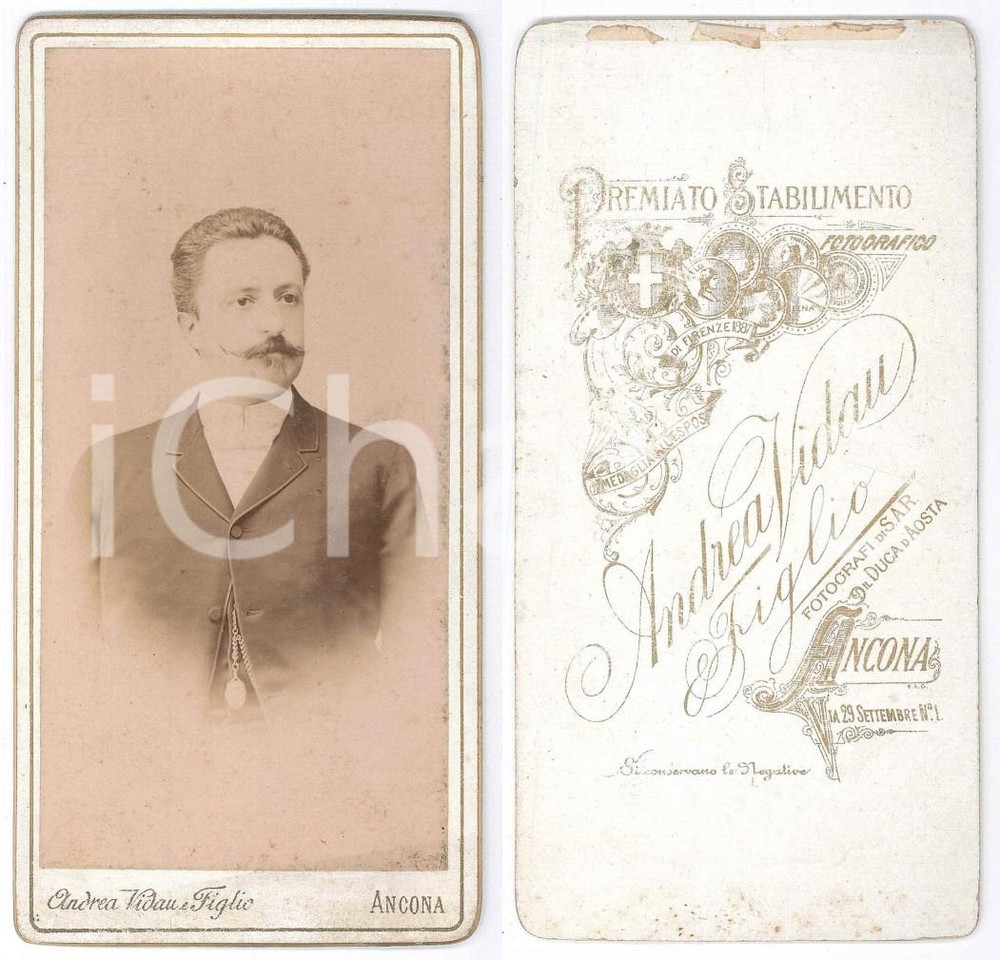 iCh
Andrea Vidau e Figlio ANCONA
PREMIATO STABILIMENTO
FOTOGRAFICO
DI FIRENZE 1887
MEDAGLIA ALL'ESPOS.
Andrea Vidau
Figlio
FOTOGRAFI DI S.A.R.
IL DUCA D'AOSTA
ANCONA
VIA 29 SETTEMBRE Nº 1.
Si conservano le Negative